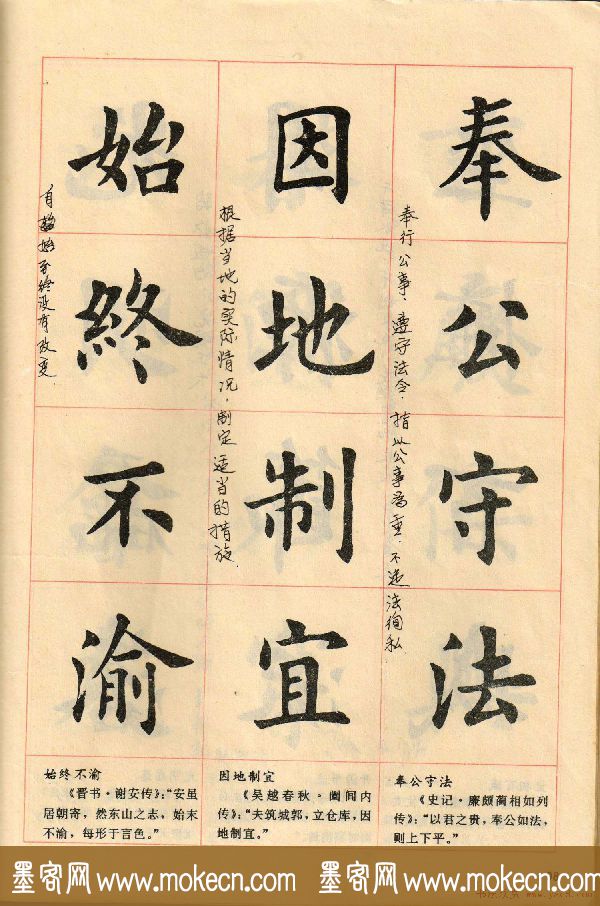 奉公守法
奉行公事，遵守法令，指以公事为重，不违法徇私
因地制宜
根据当地的实际情况，制定适当的措施
始終不渝
自始至终没有改变
奉公守法
《史记·廉颇蔺相如列
传》：“以君之贵，奉公如法，
则上下平。”
因地制宜
《吴越春秋·阖闾内
传》：“夫筑城郭，立仓库，因
地制宜。”
始终不渝
《晋书·谢安传》：“安虽
居朝寄，然东山之志，始末
不渝，每形于言色。”
墨客网 www.mokecn.com 墨客网 www.mokecn.com